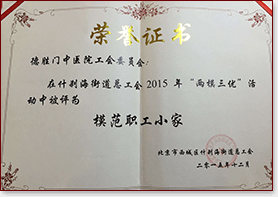 荣誉证书
德胜门中医院工会委员会：
在什刹海街道总工会 2015 年“两模三优”活
动中被评为
模范职工小家
北京市西城区什刹海街道总工会
二〇一五年十二月